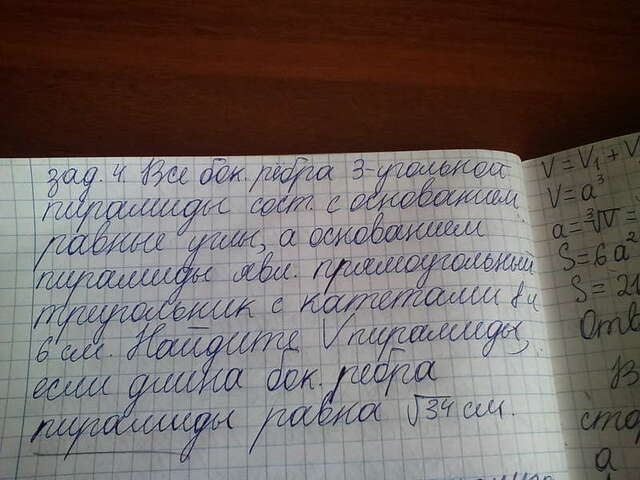 зад. 4. Все бок. рёбра 3-угольной
пирамиды сост. с основанием
равные углы, а основанием
пирамиды явл. прямоугольный
треугольник с катетами 8 и
6 см. Найдите V пирамиды,
если длина бок. ребра
пирамиды равна √34 см.
V = V₁ + V
V = a³
a = ³√V =
S = 6a²
S = 21
Отв
В
сто
a